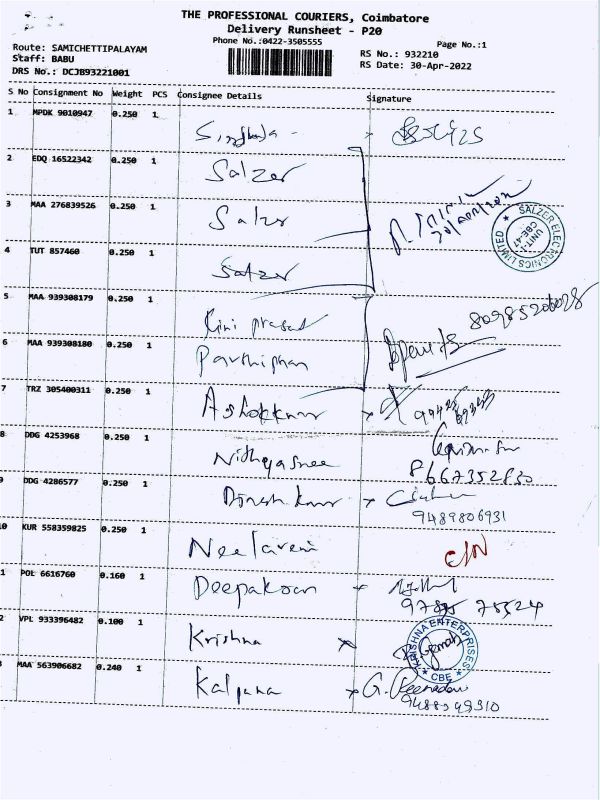 THE PROFESSIONAL COURIERS, Coimbatore
Delivery Runsheet - P20
Phone No.:0422-3505555
Page No.:1
Route: SAMICHETTIPALAYAM
Staff: BABU
DRS No.: DCJB93221001
RS No.: 932210
RS Date: 30-Apr-2022
S No Consignment No Weight PCS Consignee Details Signature
1 MPDK 9010947 0.250 1
2 EDQ 16522342 0.250 1 Salzer
3 MAA 276839526 0.250 1 Salzer
SALZER ELECTRONICS LIMITED
UNIT-1
CBE-47
4 TUT 857460 0.250 1 Salzer
5 MAA 939308179 0.250 1 Giri prasad
6 MAA 939308180 0.250 1 Parthiphan
7 TRZ 305400311 0.250 1 Ashokkumar
8 DDG 4253968 0.250 1 Nithyasree
8667352830
9 DDG 4286577 0.250 1 Dinesh kumar
9489806931
0 KUR 558359825 0.250 1 Neelaveni
1 POL 6616760 0.160 1 Deepakoran
2 VPL 933396482 0.100 1 Krishna
KRISHNA ENTERPRISES
CBE
3 MAA 563906682 0.240 1 Kalpana